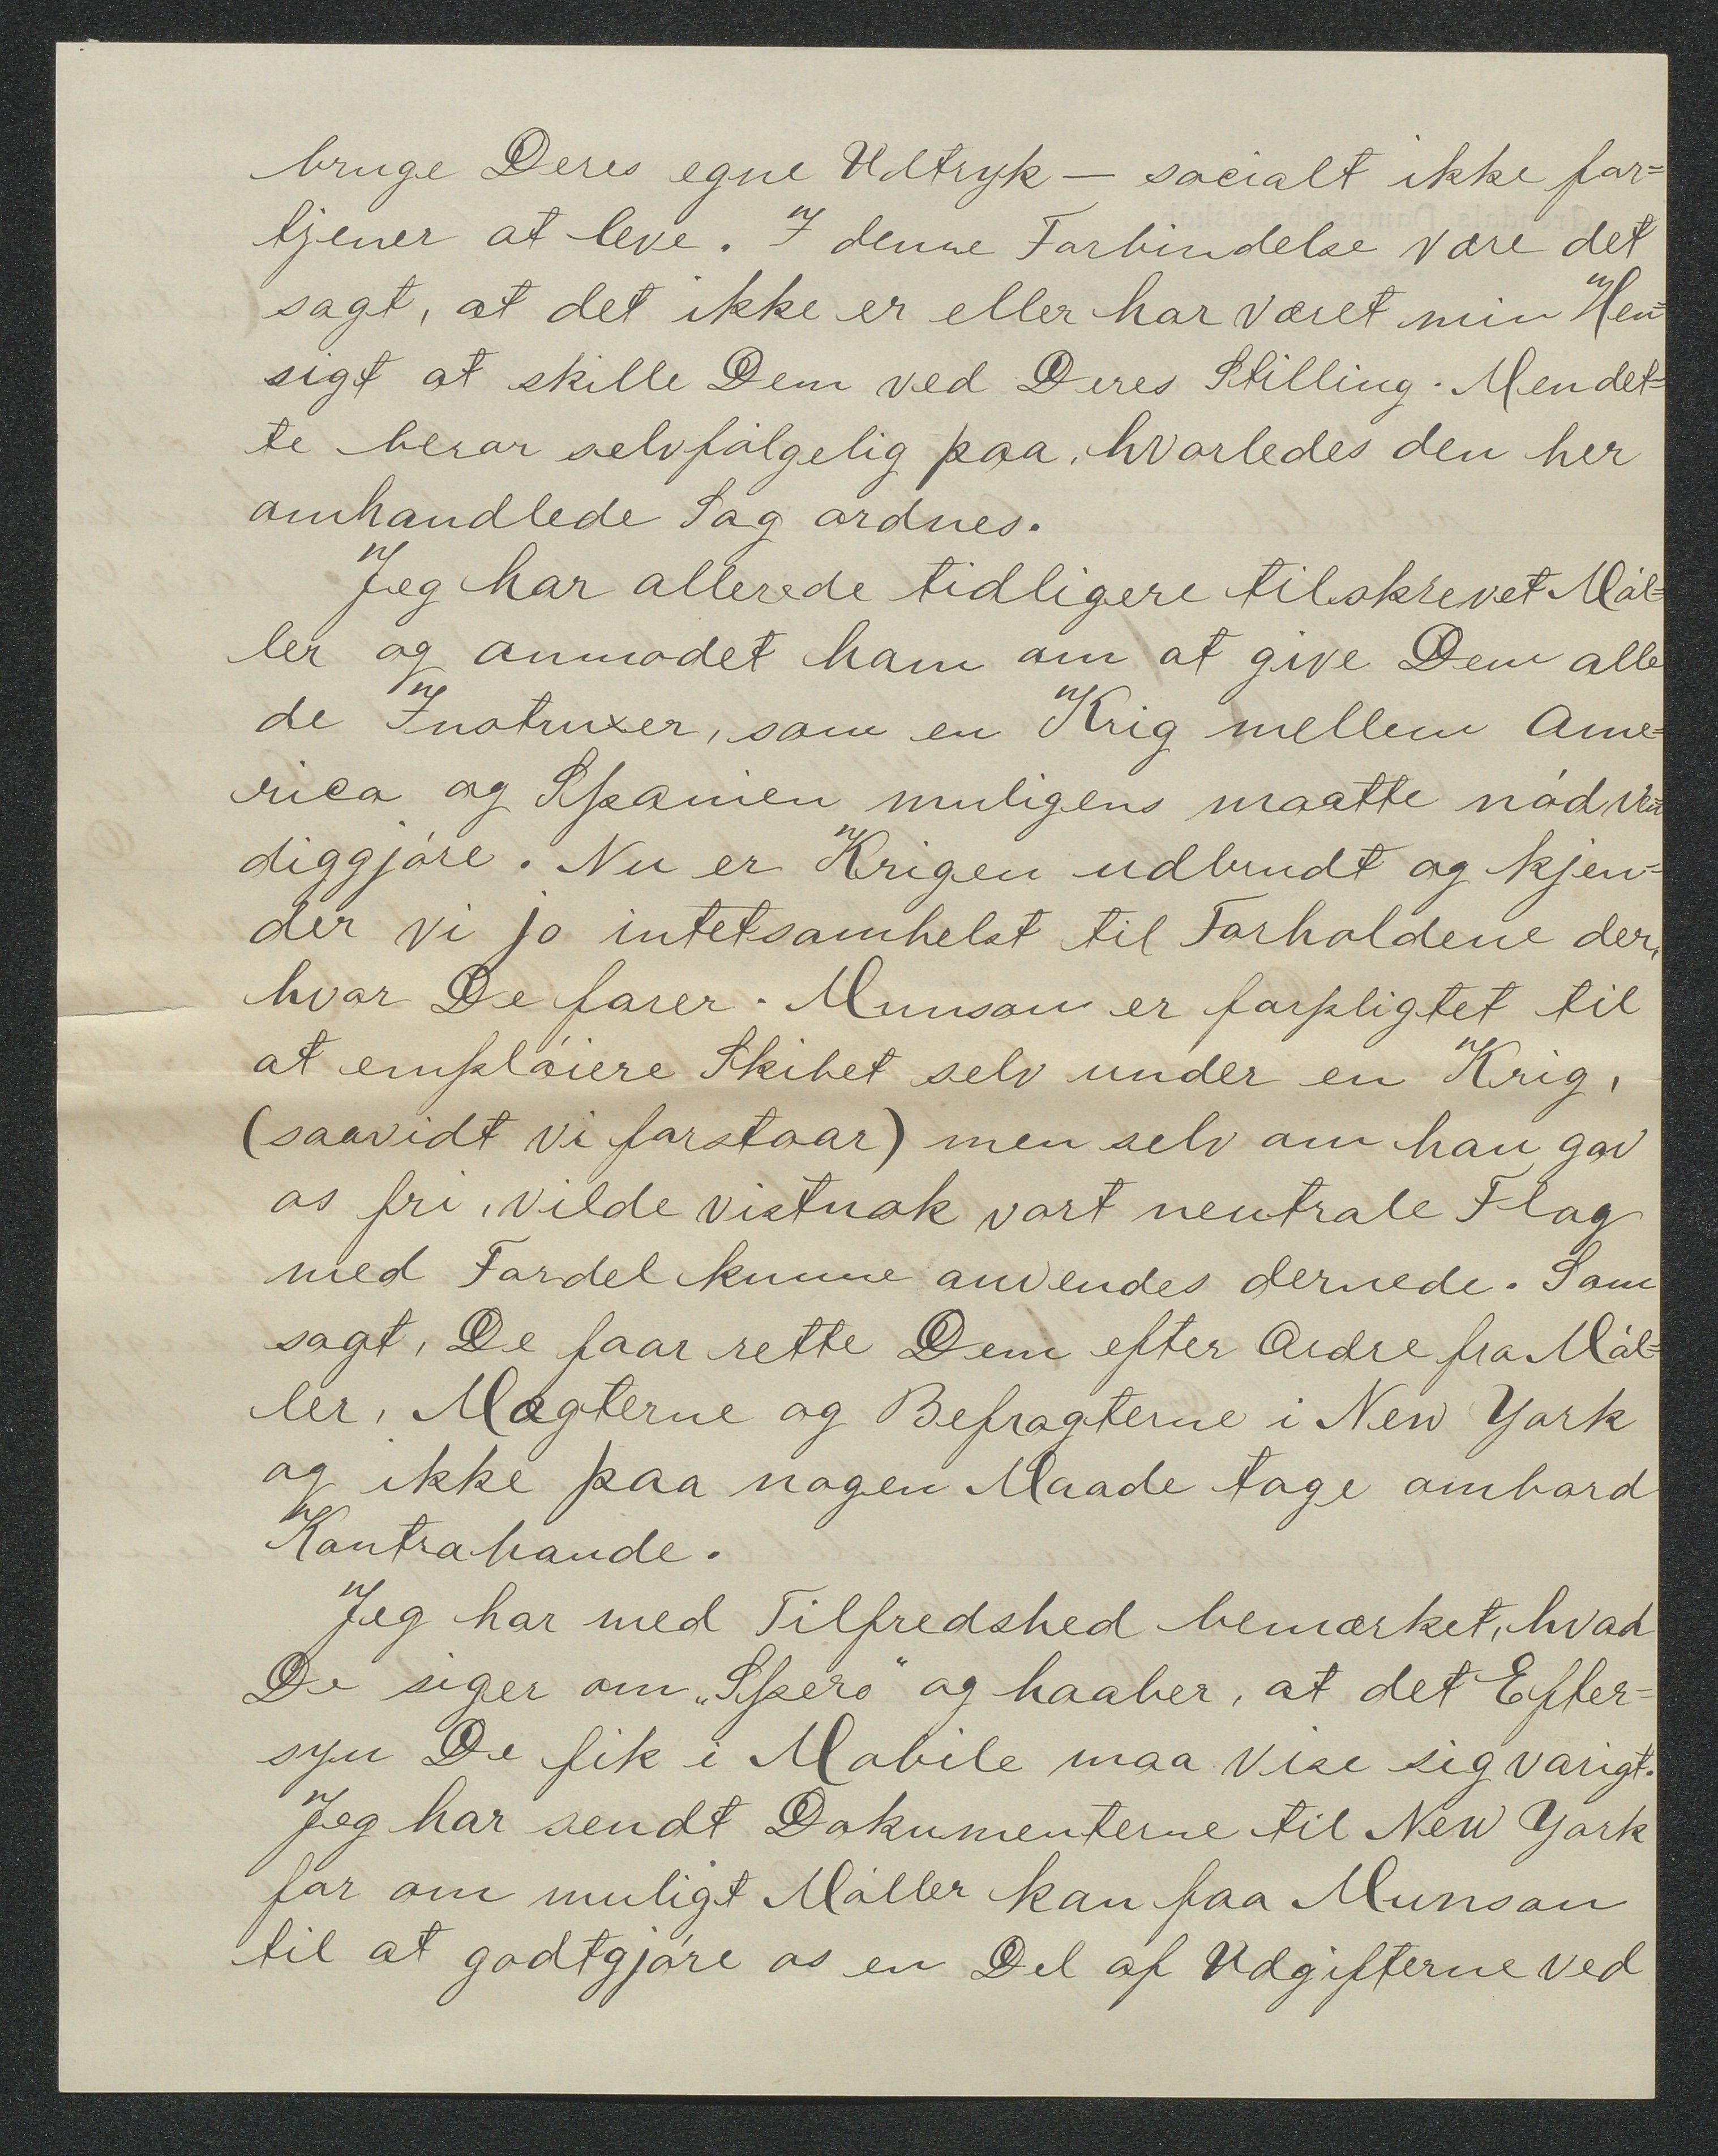 bruge Deres egne Udtryk — socialt ikke for=
tjener at leve. I denne Forbindelse være det
sagt, at det ikke er eller har været min Hen=
sigt at skille Dem ved Deres Stilling. Men det=
te beror selvfølgelig paa, hvorledes den her
omhandlede Sag ordnes.
Jeg har allerede tidligere tilskrevet Møl=
ler og anmodet ham om at give Dem alle
de Instruxer, som en Krig mellem Ame=
rica og Spanien muligens maatte nødven=
diggjøre. Nu er Krigen udbrudt og kjen=
der vi jo intetsomhelst til Forholdene der,
hvor De farer. Munson er forpligtet til
at emploiere Skibet selv under en Krig,
(saavidt vi forstaar) men selv om han gav
os fri, vilde vistnok vort neutrale Flag
med Fordel kunne anvendes dernede. Som
sagt, De faar rette Dem efter Ordre fra Møl=
ler, Mægterne og Befragterne i New York
og ikke paa nogen Maade tage ombord
Kontrabande.
Jeg har med Tilfredshed bemærket, hvad
De siger om „Spero" og haaber, at det Efter=
syn De fik i Mobile maa vise sig varigt.
Jeg har sendt Dokumenterne til New York
for om muligt Møller kan faa Munson
til at godtgjøre os en Del af Udgifterne ved